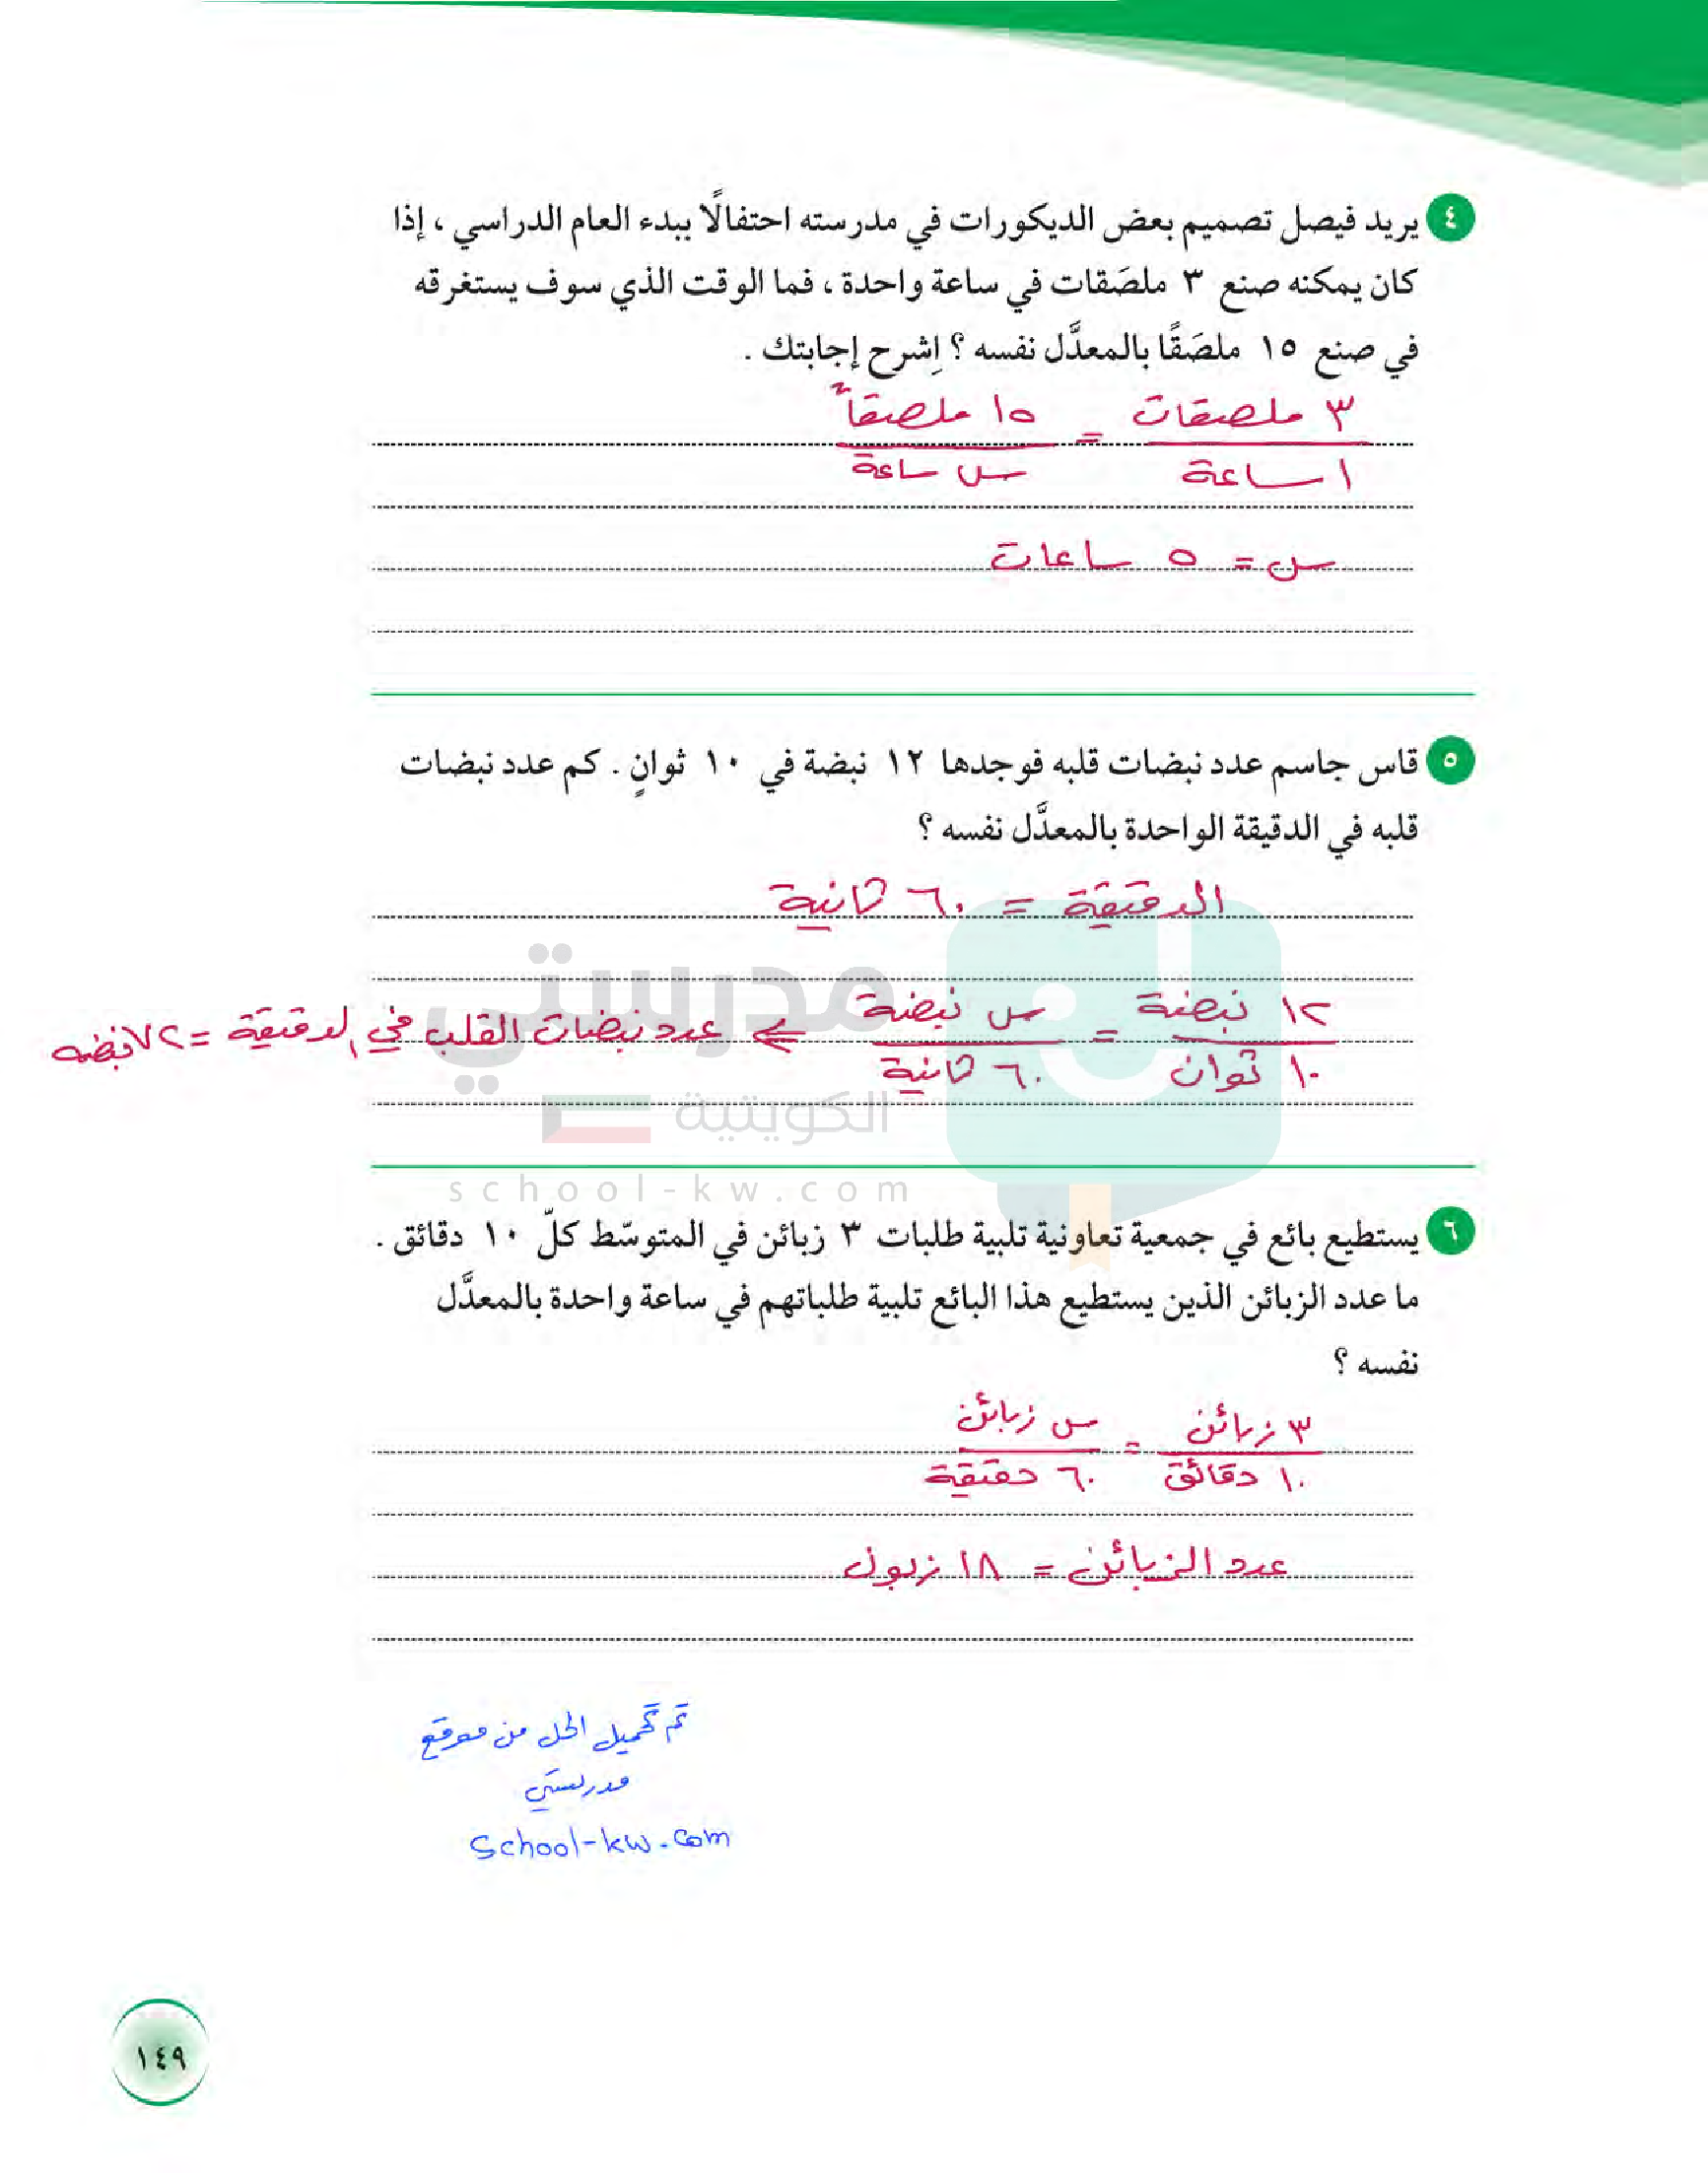 ٤ يريد فيصل تصميم بعض الديكورات في مدرسته احتفالًا ببدء العام الدراسي ، إذا
كان يمكنه صنع ٣ ملصَقات في ساعة واحدة ، فما الوقت الذي سوف يستغرقه
في صنع ١٥ ملصَقًا بالمعدَّل نفسه ؟ اِشرح إجابتك .
٣ ملصقات = ١٥ ملصقاً
١ ساعة س ساعة
س = ٥ ساعات
٥ قاس جاسم عدد نبضات قلبه فوجدها ١٢ نبضة في ١٠ ثوانٍ . كم عدد نبضات
قلبه في الدقيقة الواحدة بالمعدَّل نفسه ؟
الدقيقة = ٦٠ ثانية
مدرستي
١٢ نبضة = س نبضة ⇐ عدد نبضات القلب في الدقيقة = ٧٢ نبضه
١٠ ثوان ٦٠ ثانية
الكويتية
school-kw.com
٦ يستطيع بائع في جمعية تعاونية تلبية طلبات ٣ زبائن في المتوسّط كلّ ١٠ دقائق .
ما عدد الزبائن الذين يستطيع هذا البائع تلبية طلباتهم في ساعة واحدة بالمعدَّل
نفسه ؟
٣ زبائن = س زبائن
١٠ دقائق ٦٠ دقيقة
عدد الزبائن = ١٨ زبون
تم تحميل الحل من موقع
مدرستي
school-kw.com
١٤٩